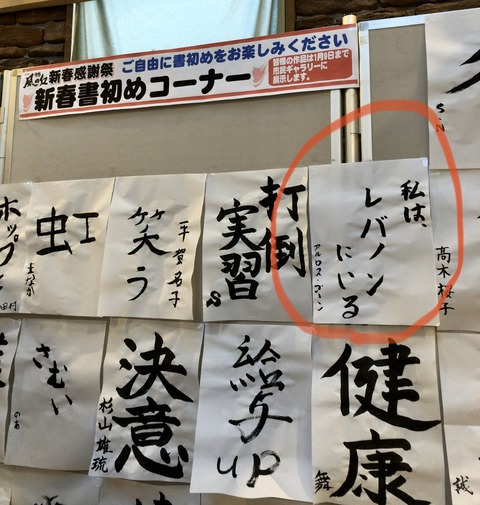 風の丘
新春感謝祭
ご自由に書初めをお楽しみください
新春書初めコーナー
皆様の作品は1月9日まで
市民ギャラリーに
展示します。
S.N
私は、
レバノン
にいる
アルロス・ゴーン
高木桜子
打倒
実習
S
笑う
平賀名子
虹
まなか
ホップ
田村
健康
舞
給与
up
決意
杉山雄琉
さむい
のあ
誠